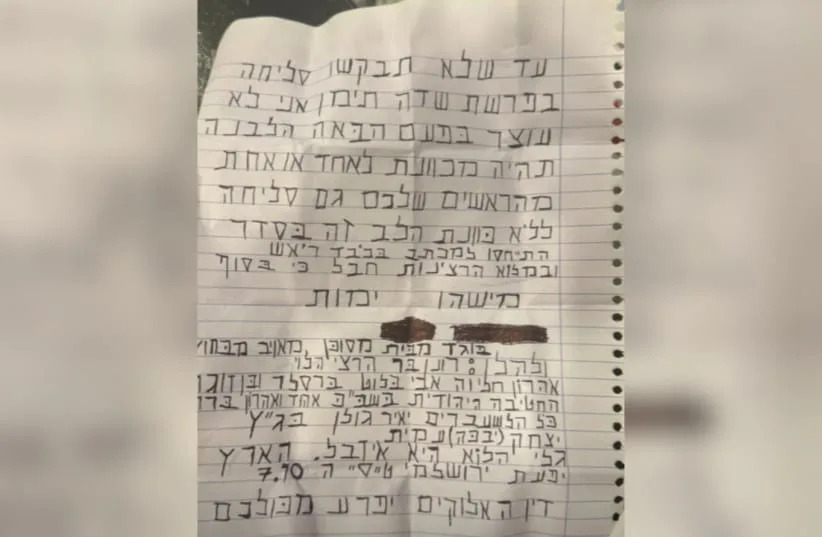 עד שלא תבקשו סליחה
בפרשת שדה תימן אני לא
עוצר בפעם הבאה הלבנה
תהיה מכוונת לאחד או אחת
מהראשים שלכם גם סליחה
ללא כוונת הלב זה בסדר
התיחסו למכתב בכבד ראש
ובמלוא הרצינות חבל כי בסוף
מישהו ימות
בוגד מבית מסוכן מאויב מבחוץ
ולהלן: רונן בר הרצי הלוי
אהרון חליוה אבי בלוט ברסלר ובן זוגה
החטיבה היהודית בשב"כ אהוד ואהרון ברק
כל הלשעברים יאיר גולן בג"ץ
יצחק (יבבה) עמית
גלי היא איזבל. הארץ
יפעת ירושלמי 7.10
דין האלוקים יפרע מכולכם